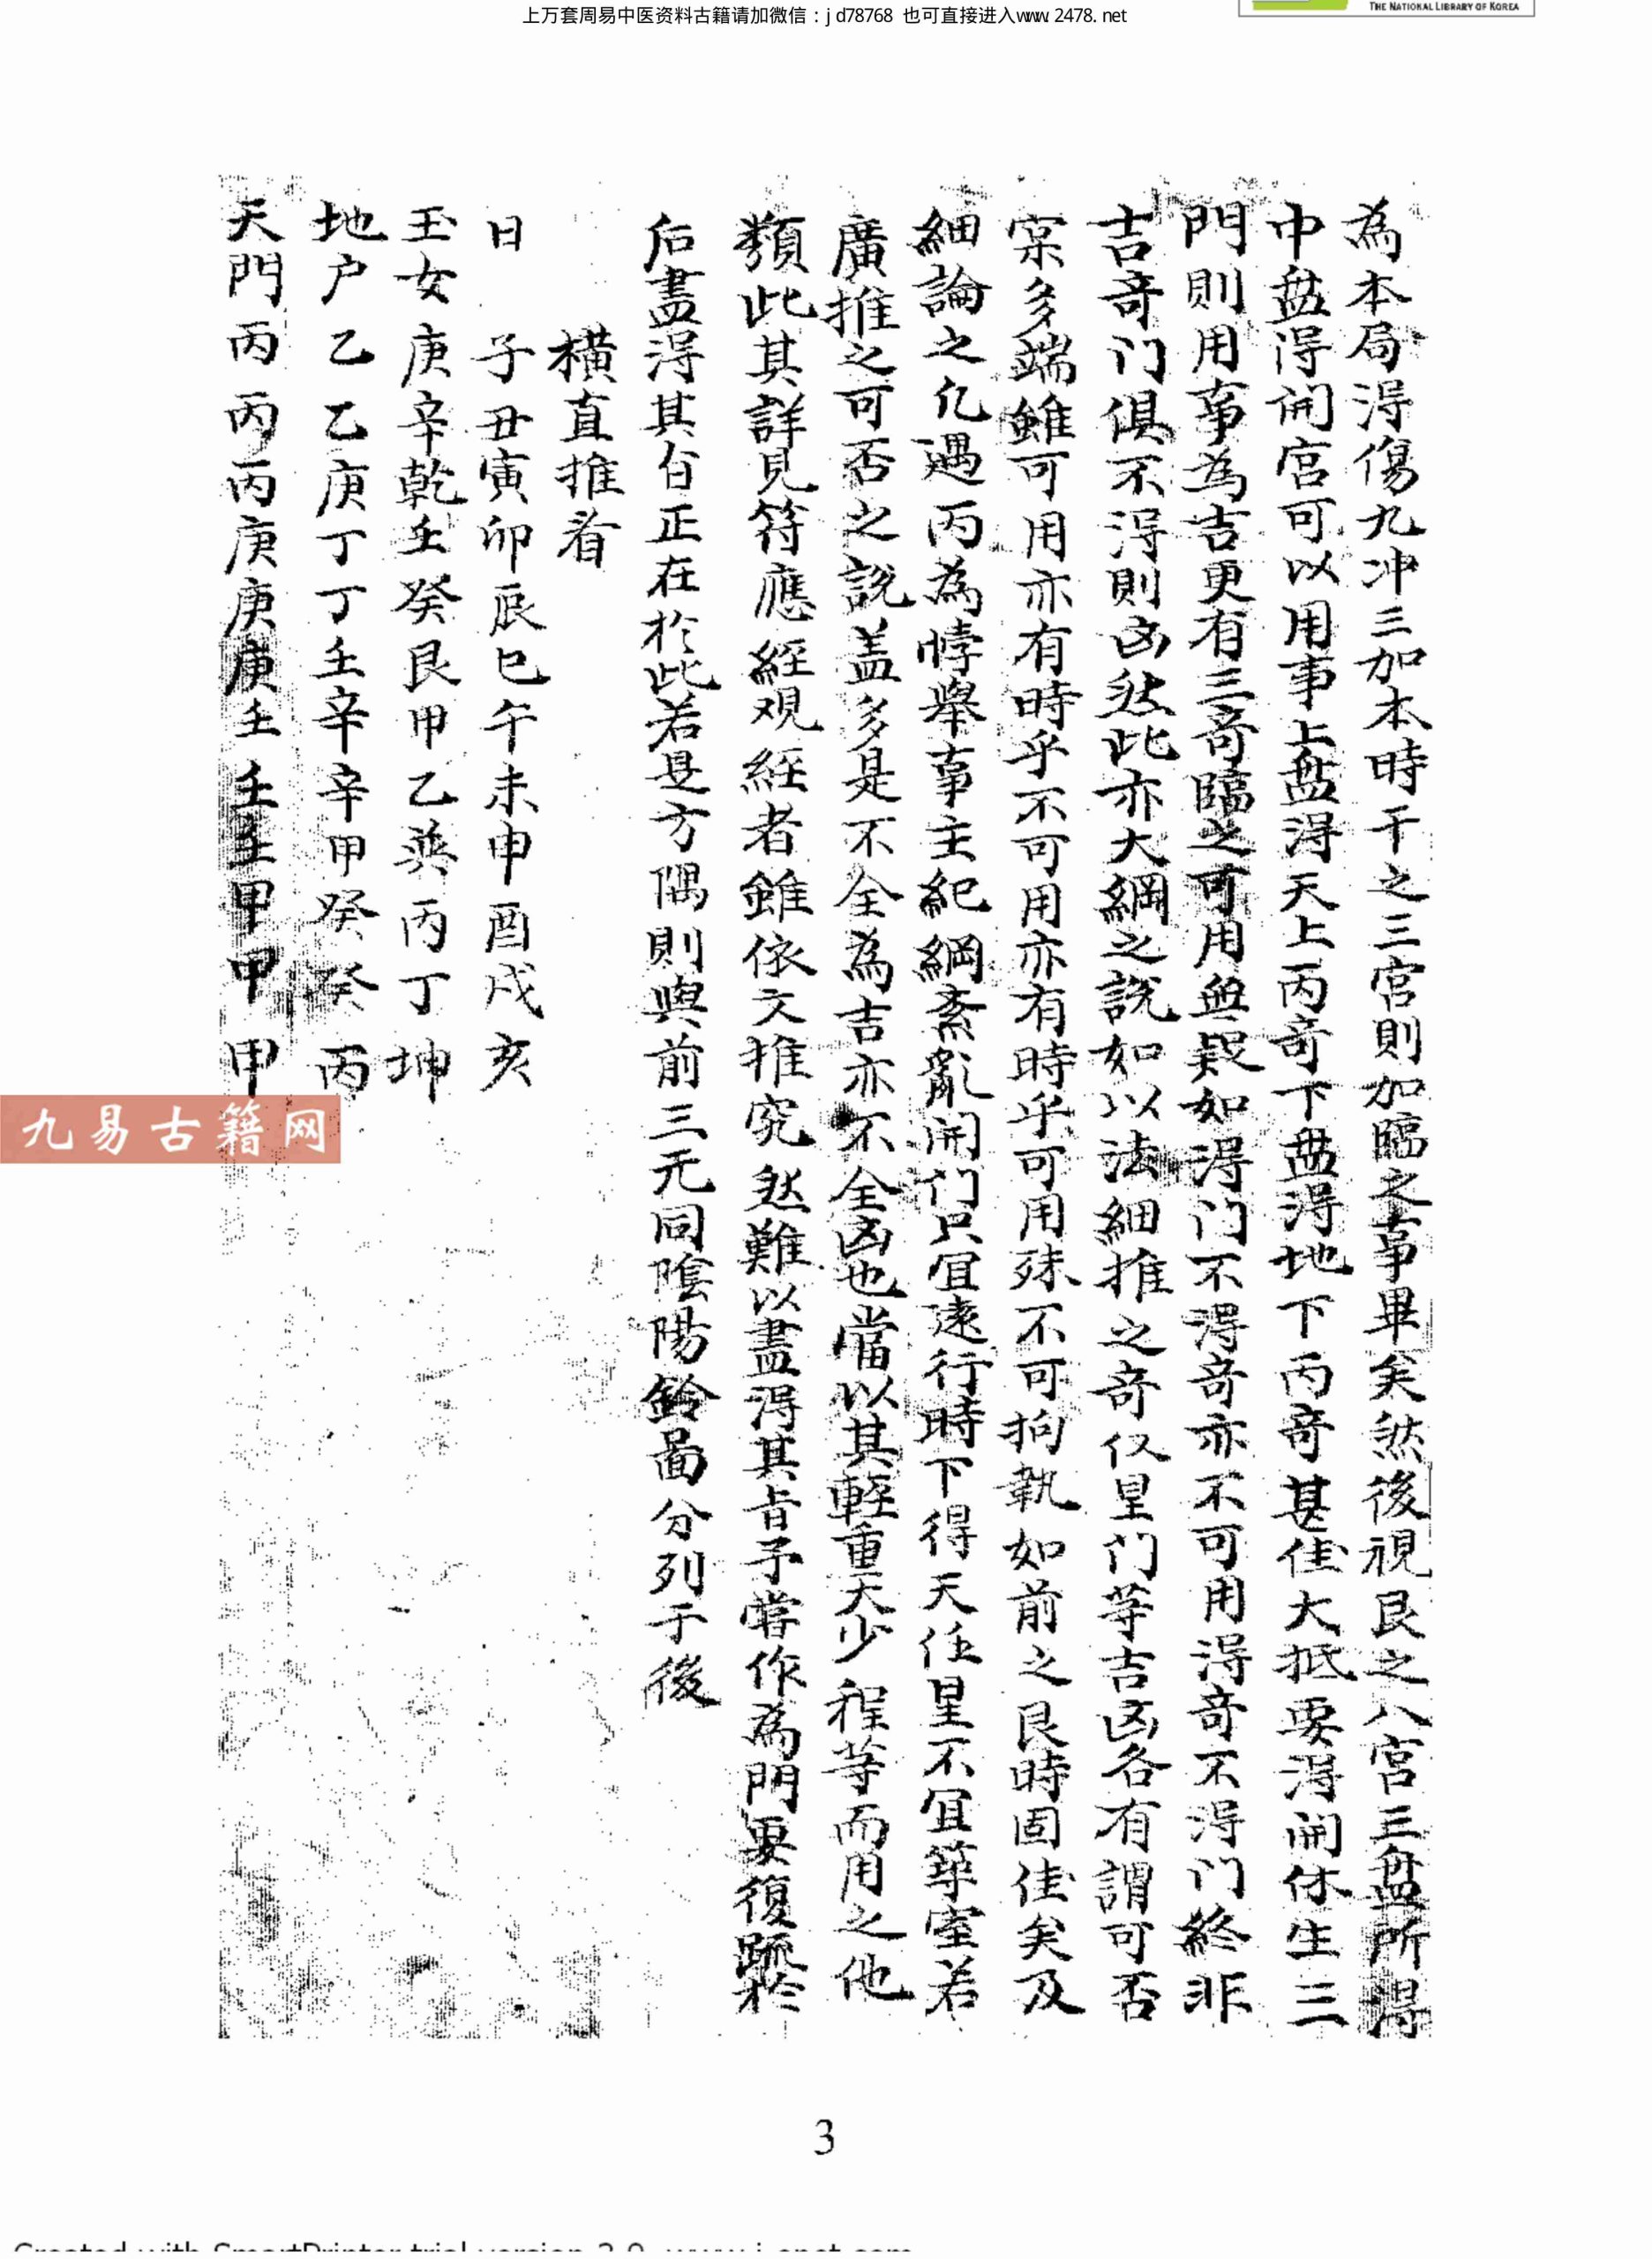 上万套周易中医资料古籍请加微信：jd78768 也可直接进入www.2478.net
THE NATIONAL LIBRARY OF KOREA
為本局淂傷九冲三加本時干之三宮則加臨之事畢矣然後視艮之八宮三盘所淂
中盘淂開宮可以用事上盘淂天上丙奇下盘淂地下丙奇甚佳大抵要淂開休生三
門則用事為吉更有三奇臨之可用無疑如淂门不淂奇亦不可用淂奇不淂门終非
吉奇门俱不淂則凶然此亦大綱之說如以法細推之奇仅星门等吉凶各有謂可否
寀多端雖可用亦有時乎不可用亦有時乎可用殊不可拘執如前之艮時固佳矣及
細論之凢遇丙為悖舉事主紀綱紊亂開门只宜遠行時下得天任星不宜筞室若
廣推之可否之說盖多是不全為吉亦不全凶也當以其輕重大少程等而用之他
類此其詳見符應經观經者雖依文推究然難以盡淂其旨予甞作為門要復 於
后盡淂其旨正在於此若是方隅則與前三元同陰陽鈴啚分列于後
橫直推看
日 子丑寅卯辰巳午未申酉戌亥
玉女 庚辛乾壬癸艮甲乙巽丙丁坤
地户 乙乙庚丁丁壬辛辛甲癸癸丙
天門 丙丙丙庚庚庚壬壬壬甲甲甲
九易古籍网
3
Created with SmartPrinter trial version